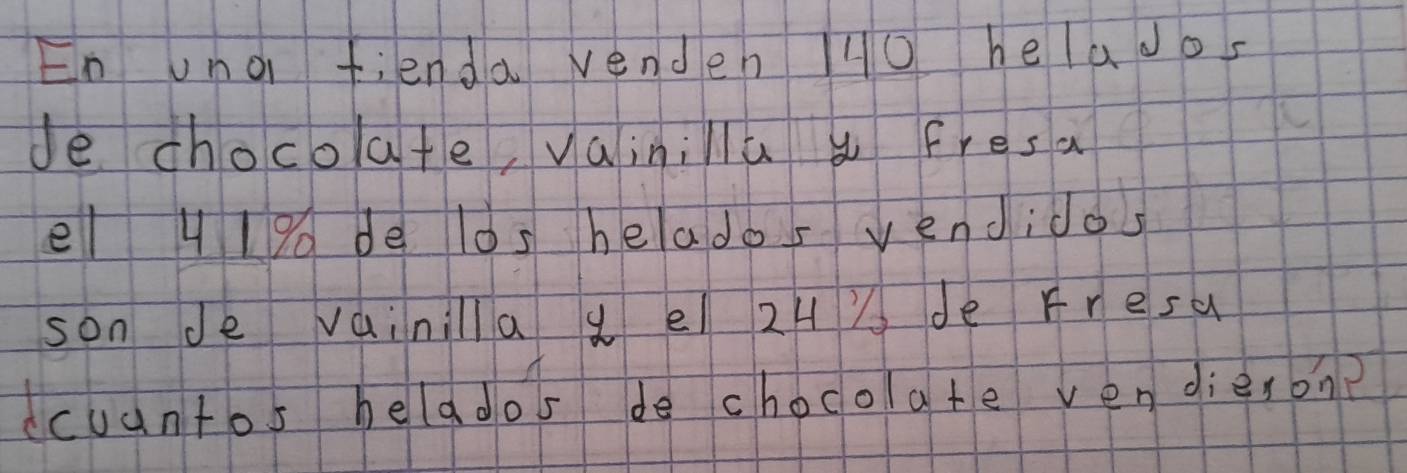 En una tienda venden 140 helados
de chocolate, vainilla y fresa
el 41% de los helados vendidos
son de vainilla y el 24% de fresa
¿cuantos helados de chocolate vendierón?